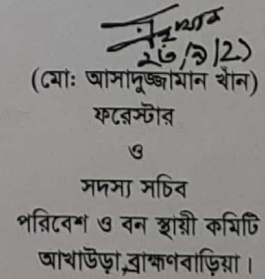 ২৬/৯/২১
(মোঃ আসাদুজ্জামান খাঁন)
ফরেস্টার
ও
সদস্য সচিব
পরিবেশ ও বন স্থায়ী কমিটি
আখাউড়া,ব্রাহ্মণবাড়িয়া।